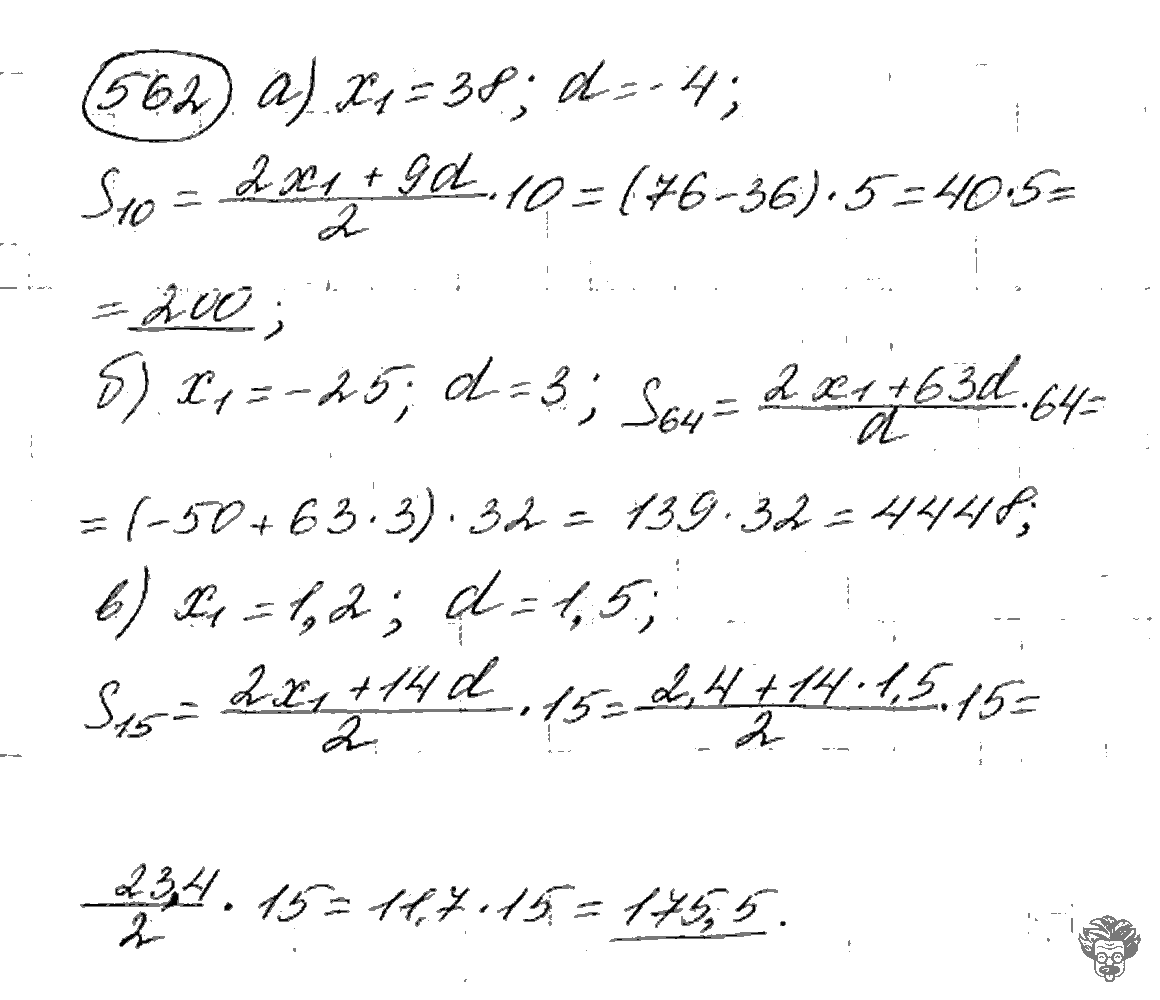 562 а) x₁ = 38; d = -4;
S₁₀ = (2x₁ + 9d)/2 · 10 = (76 - 36) · 5 = 40 · 5 =
= 200;
б) x₁ = -25; d = 3; S₆₄ = (2x₁ + 63d)/d · 64 =
= (-50 + 63 · 3) · 32 = 139 · 32 = 4448;
в) x₁ = 1,2; d = 1,5;
S₁₅ = (2x₁ + 14d)/2 · 15 = (2,4 + 14 · 1,5)/2 · 15 =
23,4/2 · 15 = 11,7 · 15 = 175,5.